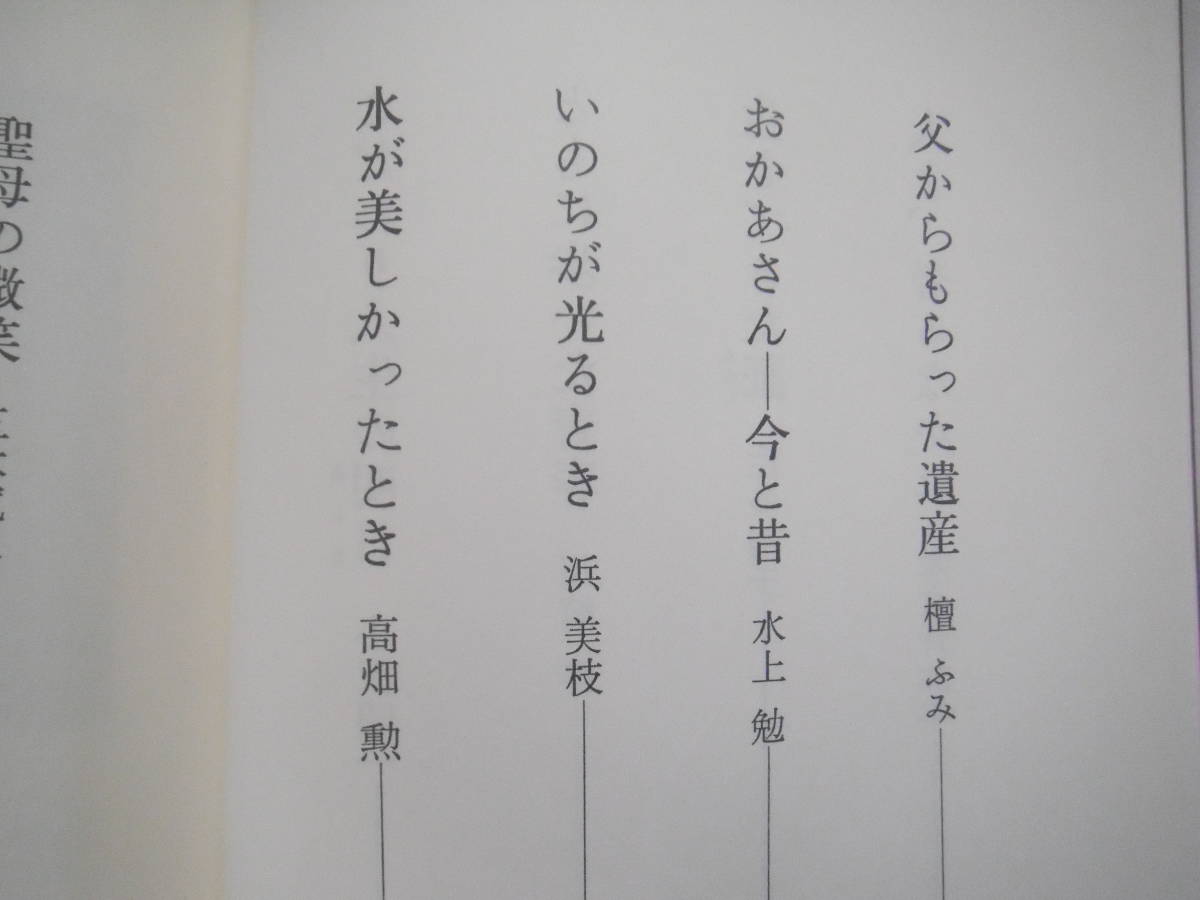 父からもらった遺産 檀 ふみ
おかあさん―今と昔 水上 勉
いのちが光るとき 浜 美枝
水が美しかったとき 高畑 勲
聖母の微笑